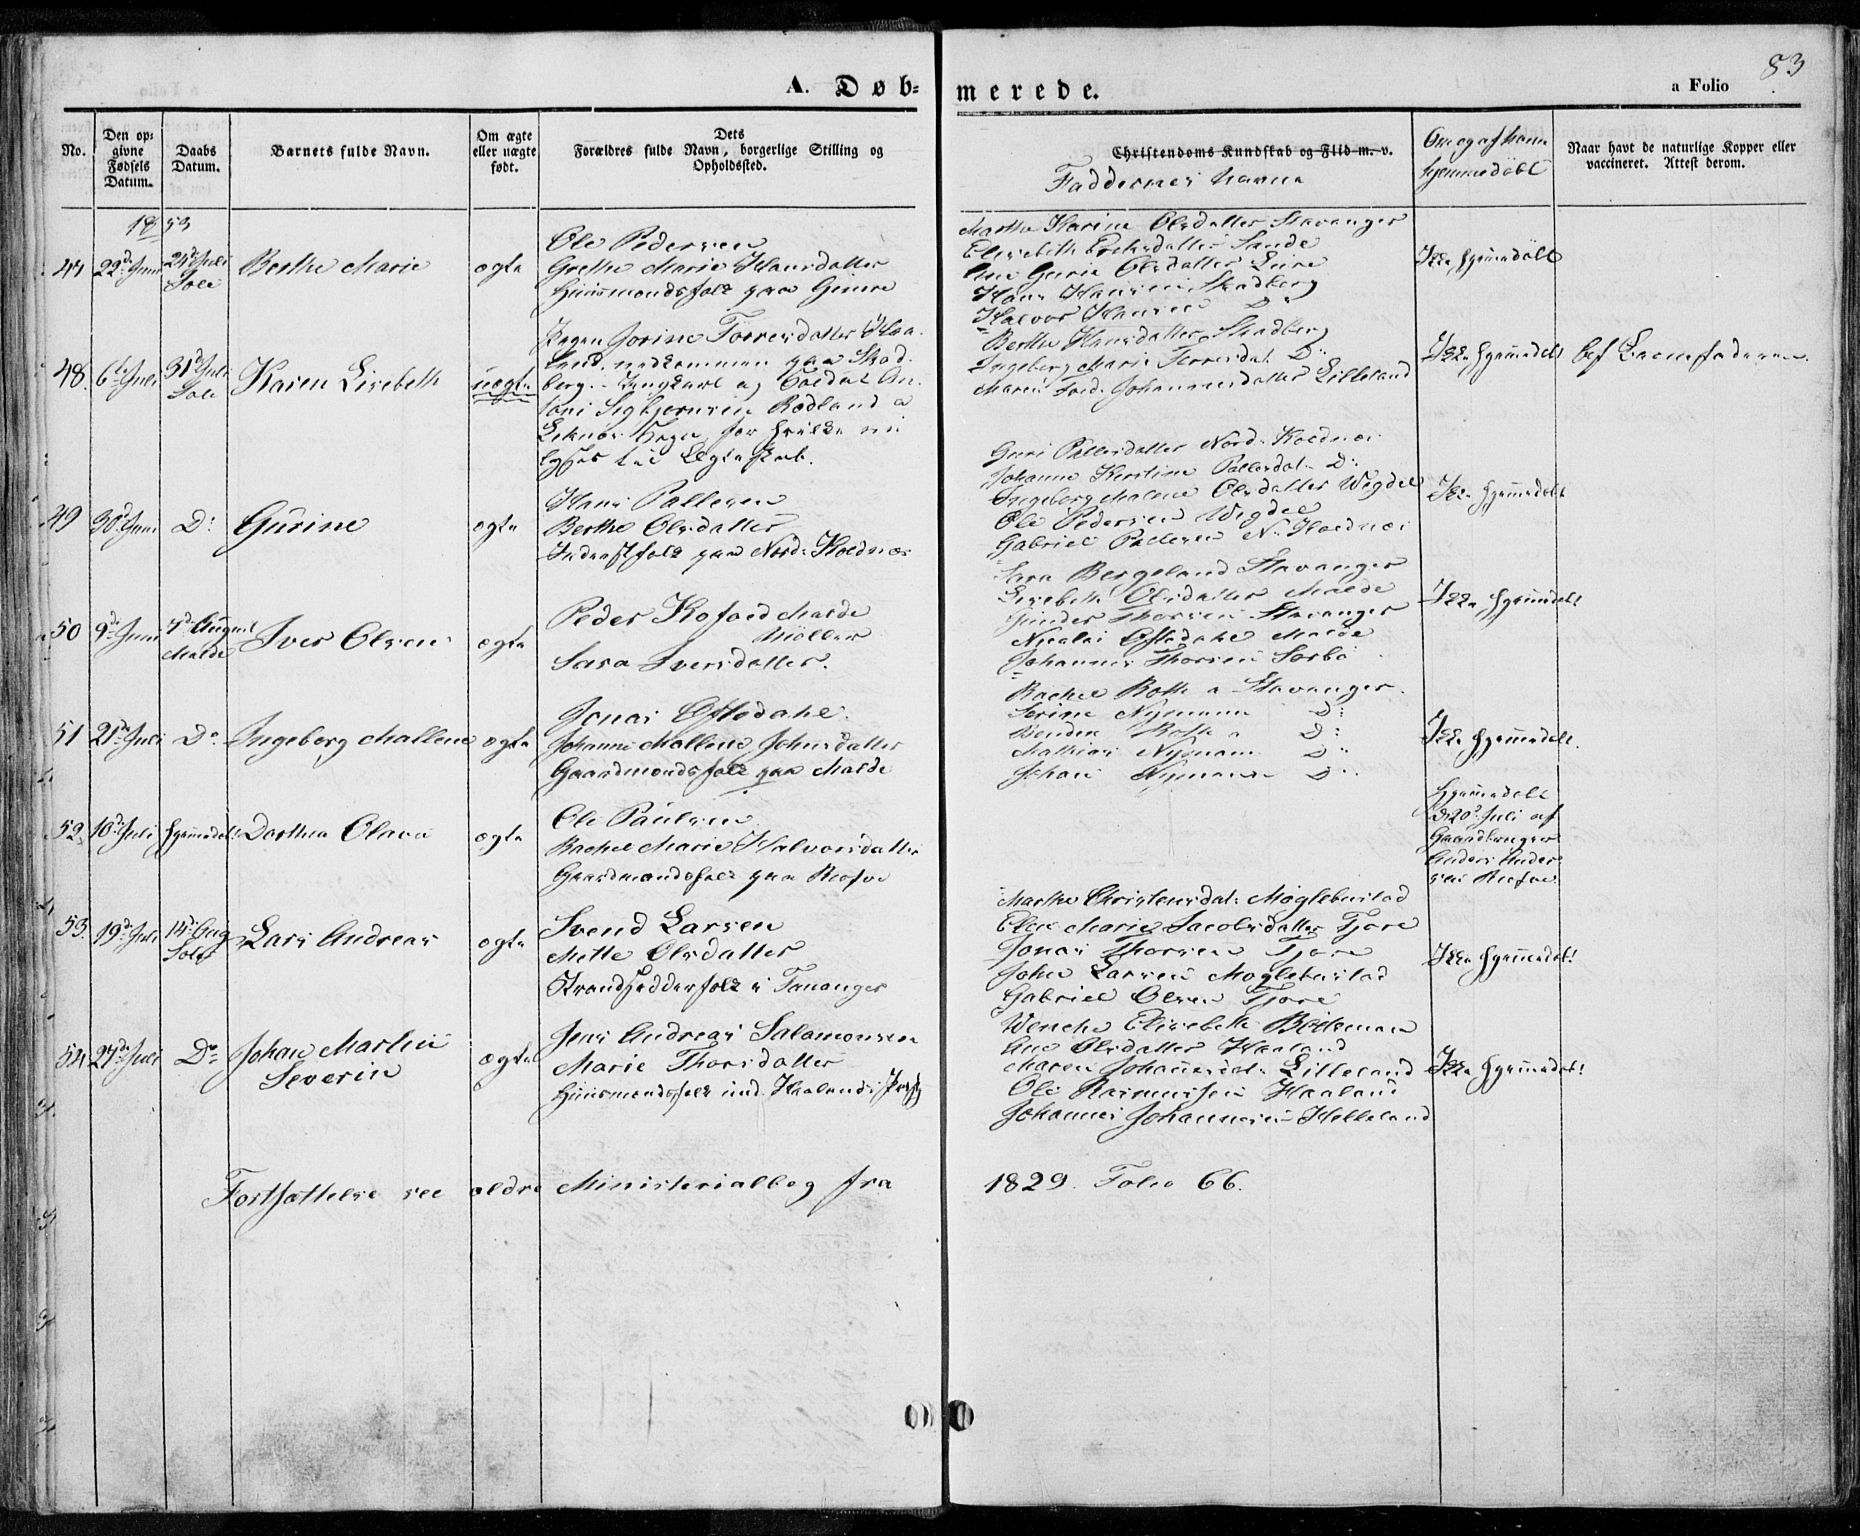 83
A. Døb=
merede.
a Folio
No.
Den op=
givne
Fødsels
Datum.
Daabs
Datum.
Barnets fulde Navn.
Om ægte
eller uægte
født.
Dets
Forældres fulde Navn, borgerlige Stilling og
Opholdssted.
Christendoms Kundskab og Flid m. v.
Faddernes Navne
Om og af hvem
hjemmedøbt
Naar havt de naturlige Kopper eller
vaccineret. Attest derom.
1853
47
22d Juni
24d Juli
Sole
Berthe Marie
ægte
Ole Pedersen
Grethe Marie Hansdatter
Huusmandsfolk paa
Marthe Karine Olsdatter Stavanger
Elisebeth Eriksdatter Sande
Ane Gurie Olsdatter
Hans Hansen Skadberg
Halvor Hansen Do
Ikke hjemmedøbt
48.
6te Juli
31d Juli
Sole
Karen Lisebeth
uægte
Pigen Jorine Torresdatter Haa-
land, nedkommen paa Skad-
berg. Ungkarl og Soldat An-
toni Sigbjørnsen Rødland a
Sogn, for hvilke nu
lyses til Ægteskab.
Berthe Hansdatter Skadberg
Ingeborg Marie Torresdat. Do
Maren Johannesdatter Lilleland
Ikke hjemmedøbt
bef Barnefaderen.
49
30d Juni
Do
Gurine
ægte
Hans Pallesen
Berthe Olsdatter
paa Nord-Koldnæs
Guri Pallesdatter Nord-Kolnæs
Johanne Kirstine Pallesdat. Do
Ingeborg Malene Olsdatter Wigdel
Ole Pedersen Wigdel
Gabriel Pallesen N. Kolnæs
Ikke hjemmedøbt
50
9d Juni
7d August
Malde
Iver Olsen
ægte
Peder Kofoed Malde
Møller
Sara Iversdatter.
Sara Bergeland Stavanger
Lisebeth Olsdatter Malde
Thorsen Stavanger
Nicolai Oftedahl Malde
Johannes Thorsen Sørbø
Ikke hjemmedøbt
51
21d Juli
Do
Ingeborg Mallene
ægte
Jonas Oftedahl.
Johanne Mallene Johnsdatter
Gaardmandsfolk paa Malde
Rachel Roth a Stavanger.
Serine Nymann Do
Roth a Do
Mathias Nymann Do
Johan Nymann Do
Ikke hjemmedøbt.
52
10d Juli
hjemmedøbt
Dorthea Olava
ægte
Ole Paulsen
Rachel Marie Halvorsdatter
Gaardmandsfolk paa
Hjemmedøbt
d 20d Juli af
Gaardbruger
Anders Ander-
sen
53.
19d Juli
14d Aug
Sole
Lars Andreas
ægte
Svend Larsen
Mette Olsdatter
Strandsidderfolk i Tananger
Marthe Christensdat. Møglebustad
Elen Marie Jacobsdatter Tjore
Jonas Thorsen Tjore
John Larsen Møglebustad
Gabriel Olsen Tjore
Ikke hjemmedøbt
54
27d Juli
Do
Johan Martin
Severin
ægte
Jens Andreas Salamonsen
Marie Thorsdatter
Huusmandsfolk und. Haalands
Wenche Elisebeth
Ane Olsdatter Haaland
Maren Johannesdat. Lilleland
Ole Rasmussen Haaland
Johannes Johannesen Helleland
Ikke hjemmedøbt
Fortsættelse see ældre Ministerialbog fra 1829. Folio 66.